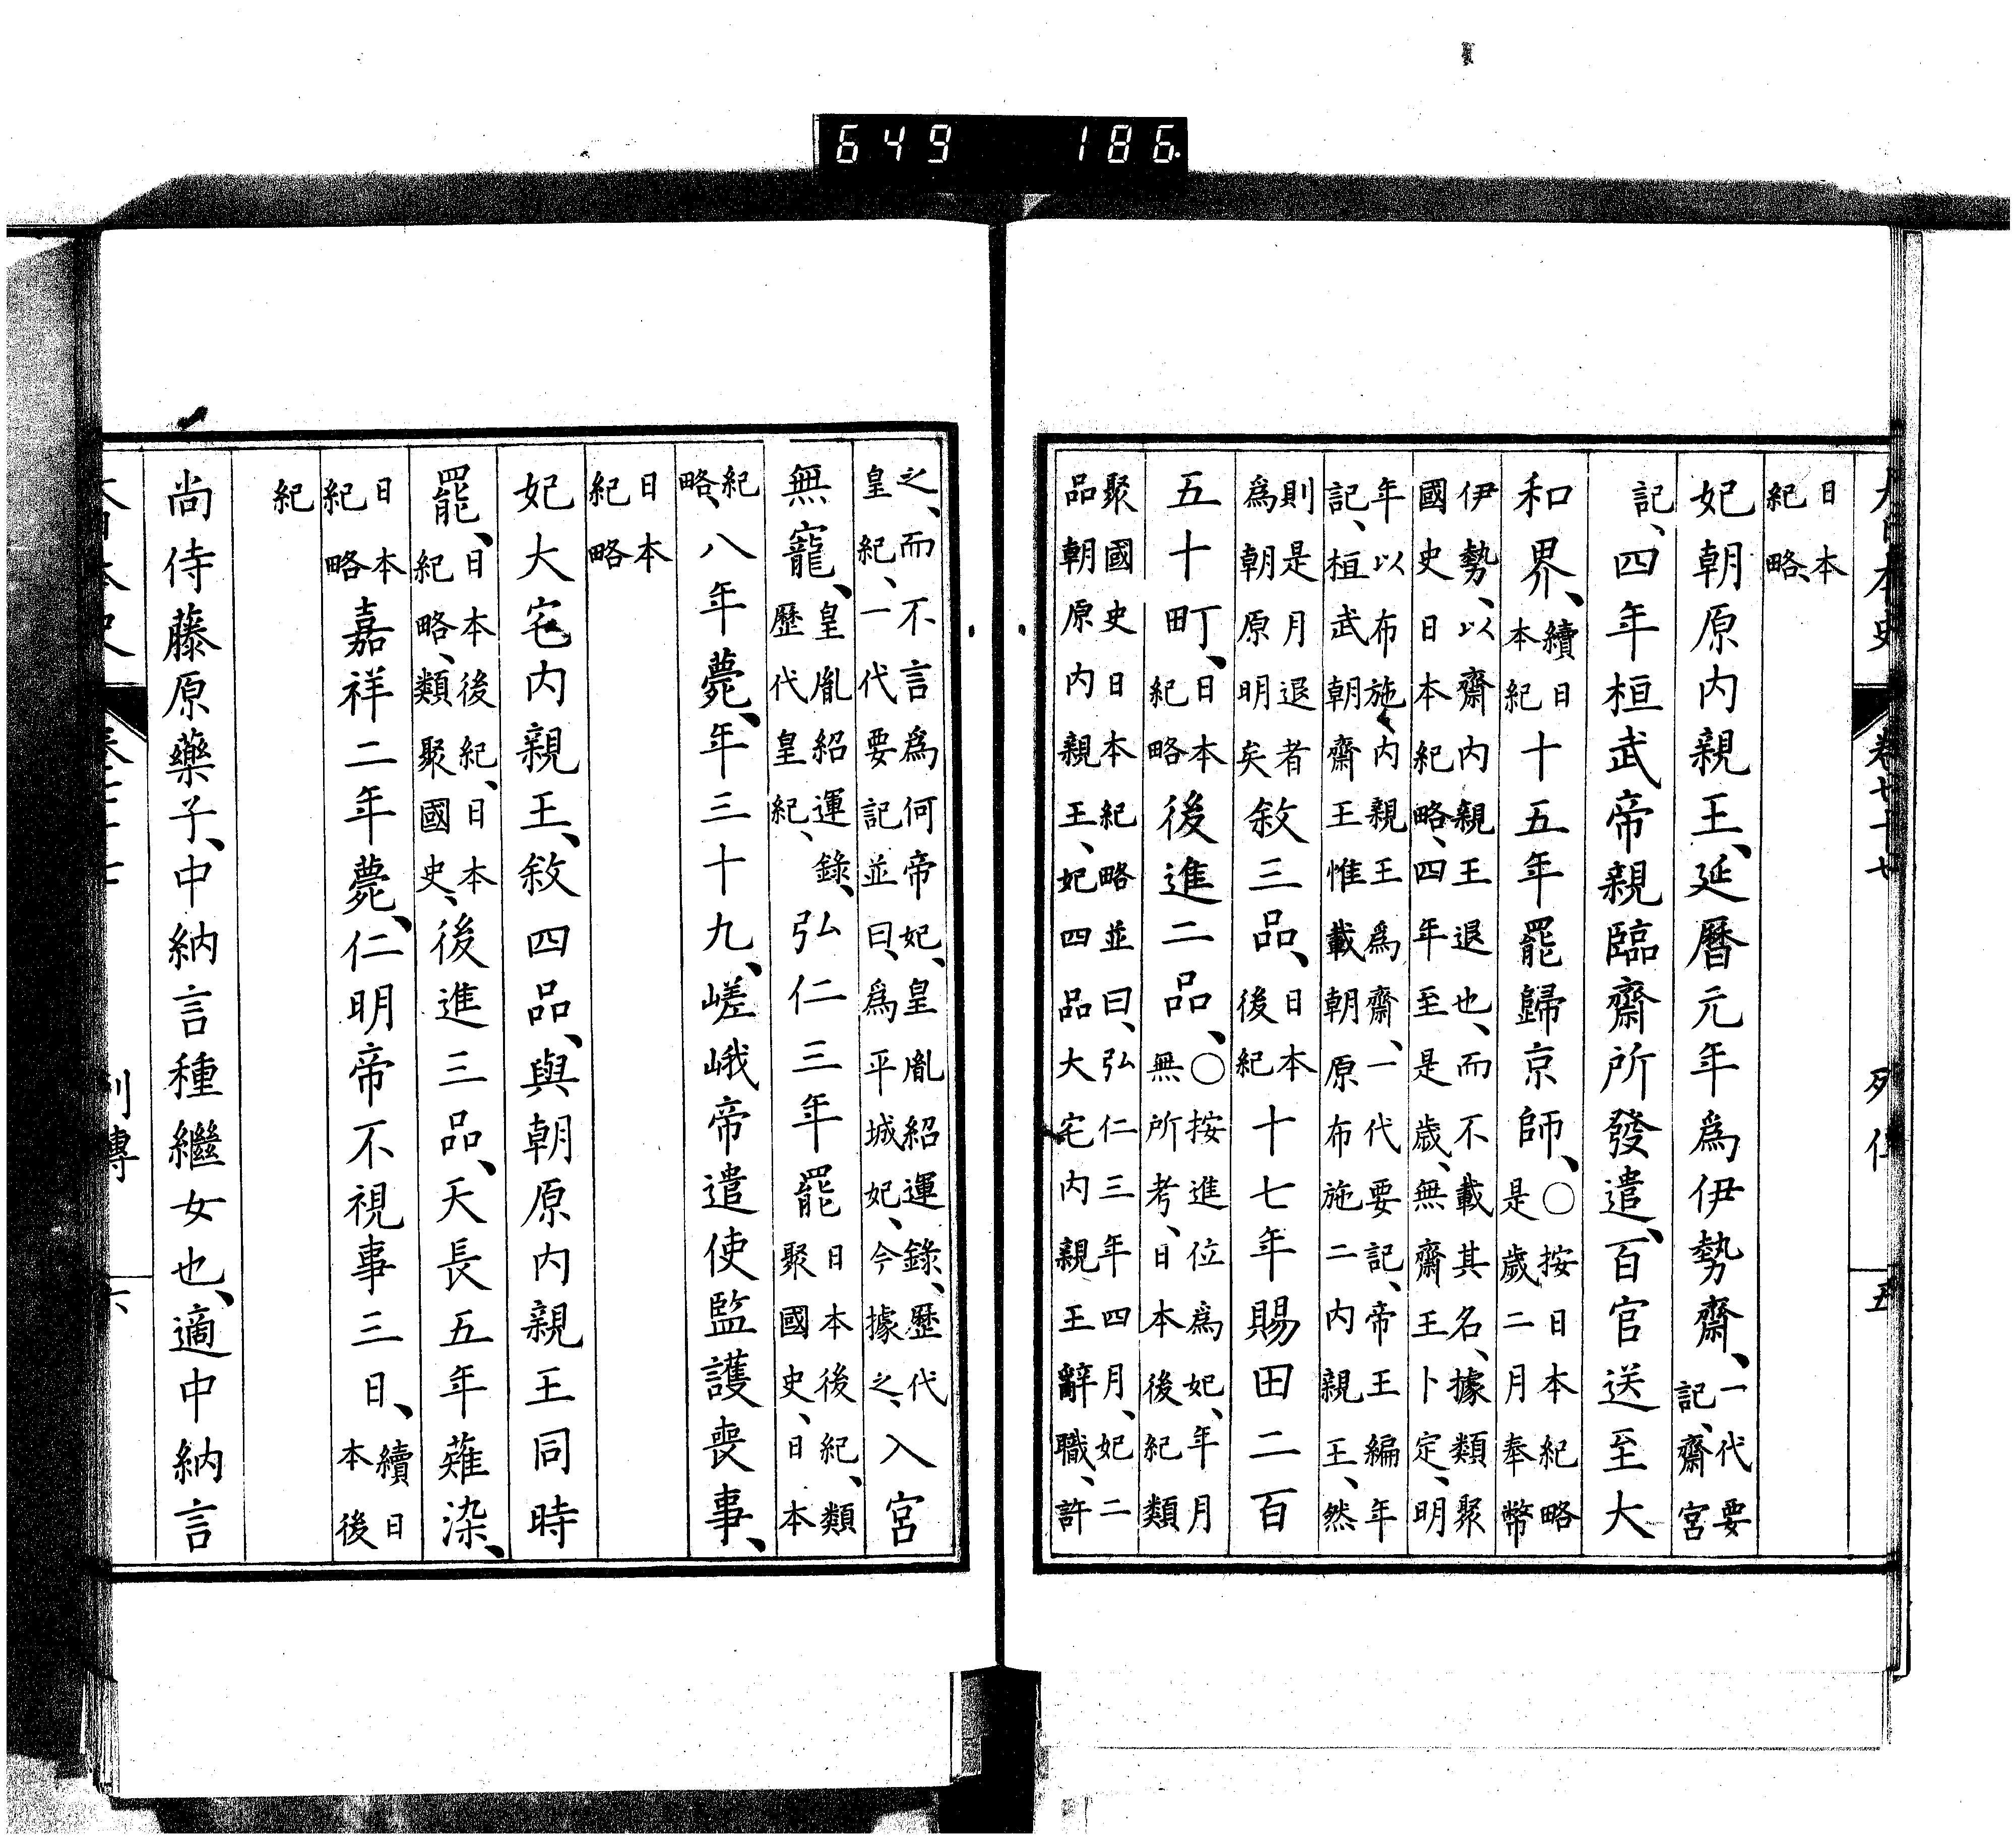 649 186
大日本史 卷七十七 列傳 五
日本紀略、
妃朝原内親王、延曆元年爲伊勢齋、一代要記、齋宮
記、四年桓武帝親臨齋所發遣、百官送至大
和界、續日本紀十五年罷歸京師、○按日本紀略是歲二月奉幣
伊勢、以齋内親王退也、而不載其名、據類聚
國史日本紀略、四年至是歲、無齋王卜定、明
年以布施内親王爲齋、一代要記、帝王編年
記、桓武朝齋王惟載朝原布施二内親王、然
則是月退者爲朝原明矣敘三品、日本後紀十七年賜田二百
五十町、日本紀略後進二品、○按進位爲妃、年月無所考、日本後紀類
聚國史日本紀略並曰、弘仁三年四月、妃二
品朝原内親王、妃四品大宅内親王辭職、許
之、而不言爲何帝妃、皇胤紹運錄、歷代
皇紀、一代要記並曰、爲平城妃、今據之、入宮
無寵、皇胤紹運錄、歷代皇紀、弘仁三年罷日本後紀、類聚國史、日本
紀略、八年薨、年三十九、嵯峨帝遣使監護喪事、
日本紀略
妃大宅内親王、敘四品、與朝原内親王同時
罷、日本後紀、日本紀略、類聚國史、後進三品、天長五年薙染、
日本紀略嘉祥二年薨、仁明帝不視事三日、續日本後
紀
尚侍藤原藥子、中納言種繼女也、適中納言
大日本史 卷七十七 列傳 六